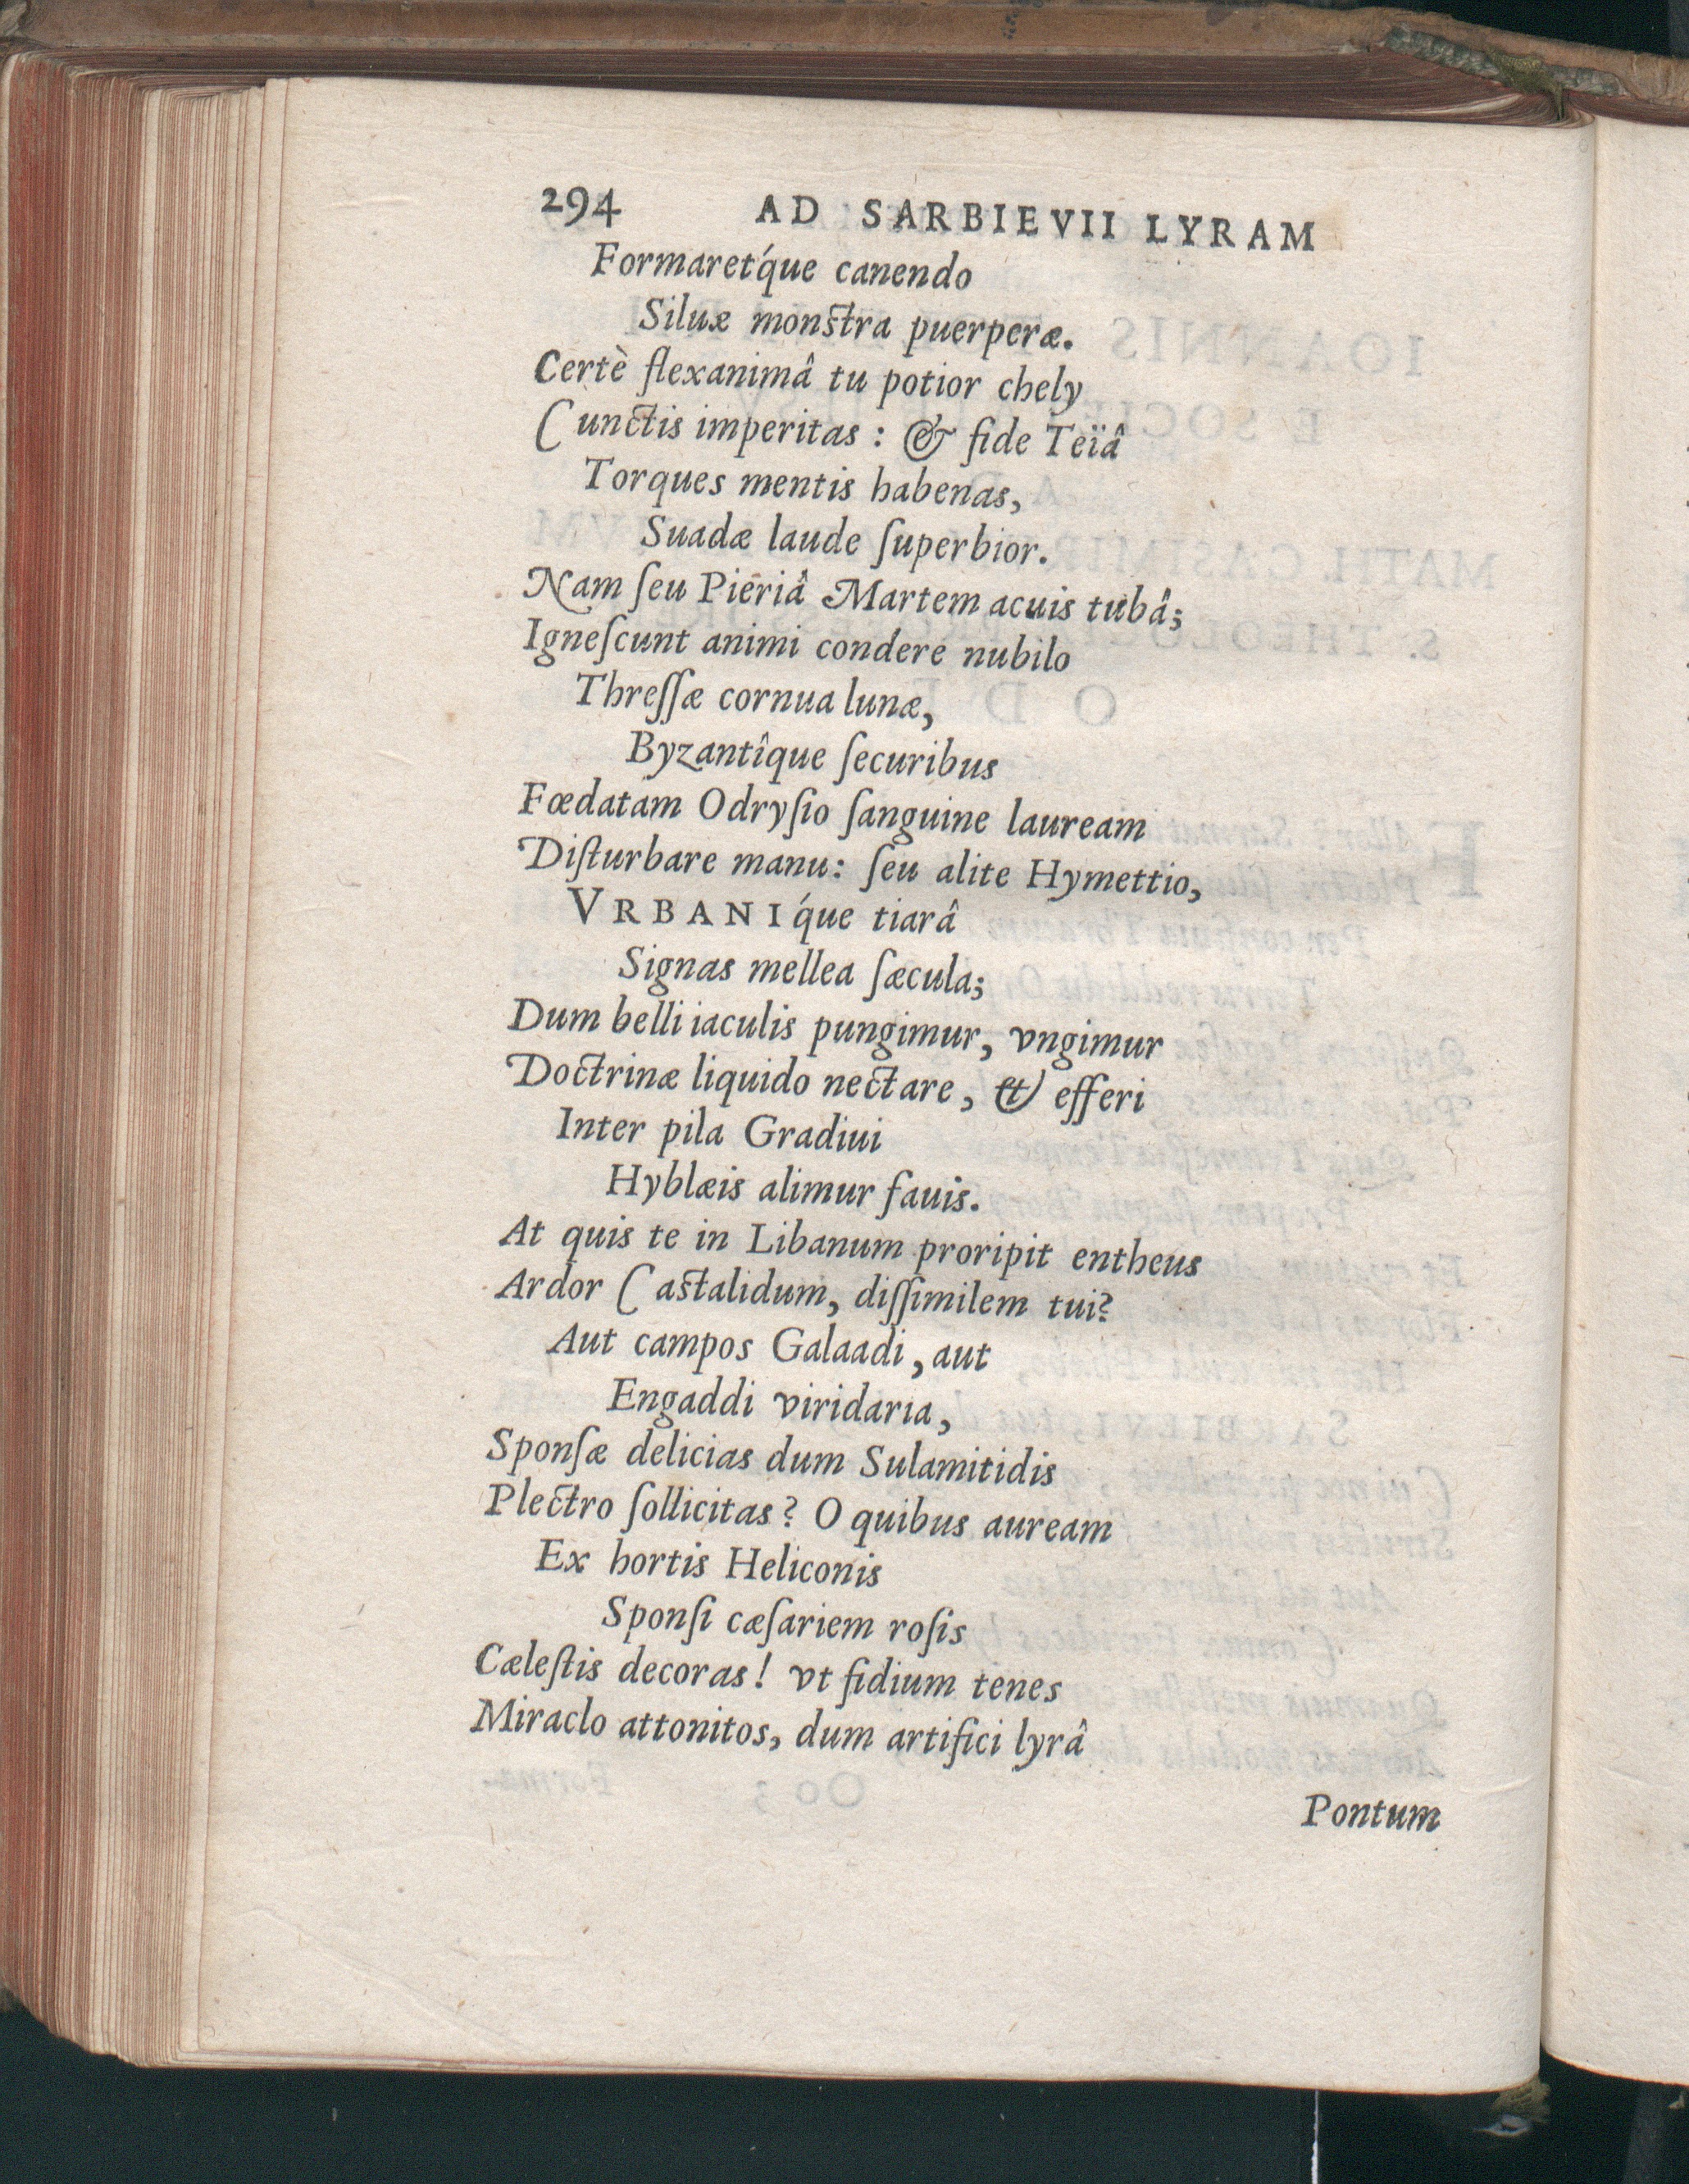 294 AD SARBIEVII LYRAM
Formaretq́ue canendo
Siluæ monstra puerperæ.
Certè flexanimâ tu potior chely
Cunctis imperitas : & fide Teïâ
Torques mentis habenas,
Suadæ laude ſuperbior.
Nam ſeu Pieriâ Martem acuis tubâ;
Igneſcunt animi condere nubilo
Threſſæ cornua lunæ,
Byzantîque ſecuribus
Fœdatam Odryſio ſanguine lauream
Diſturbare manu: ſeu alite Hymettio,
VRBANIq́ue tiarâ
Signas mellea ſæcula;
Dum belli iaculis pungimur, vngimur
Doctrinæ liquido nectare, & efferi
Inter pila Gradiui
Hyblæis alimur fauis.
At quis te in Libanum proripit entheus
Ardor Castalidum, diſſimilem tui?
Aut campos Galaadi, aut
Engaddi viridaria,
Sponſæ delicias dum Sulamitidis
Plectro ſollicitas? O quibus auream
Ex hortis Heliconis
Sponſi cæſariem roſis
Cæleſtis decoras! vt fidium tenes
Miraclo attonitos, dum artifici lyrâ
Pontum